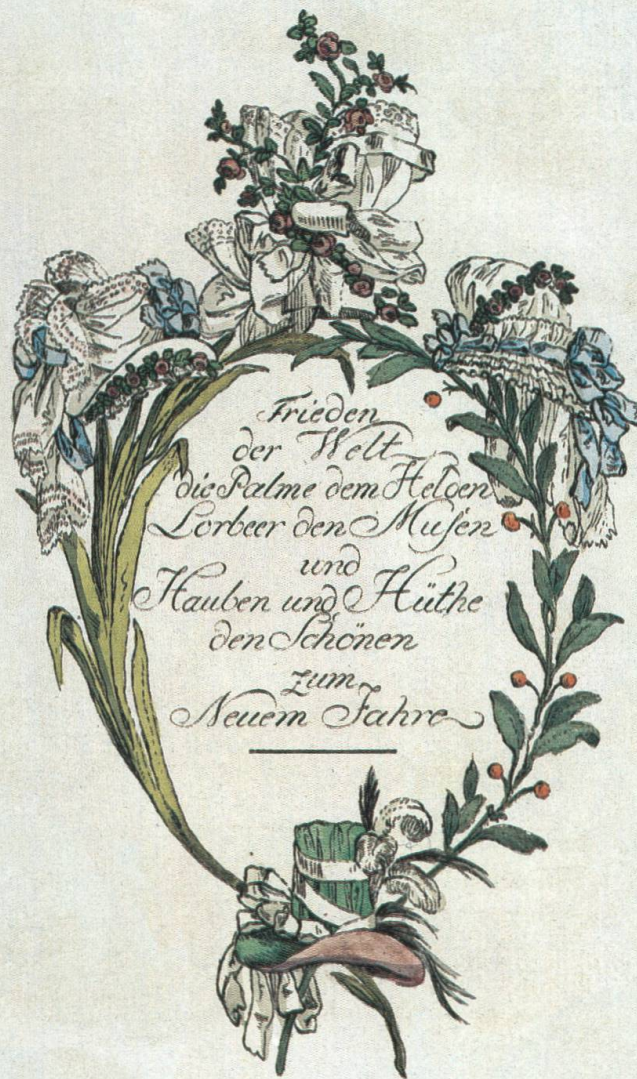 Frieden
der Welt
die Palme dem Helden
Lorbeer den Musen
und
Hauben und Hüthe
den Schönen
zum
Neuem Jahre